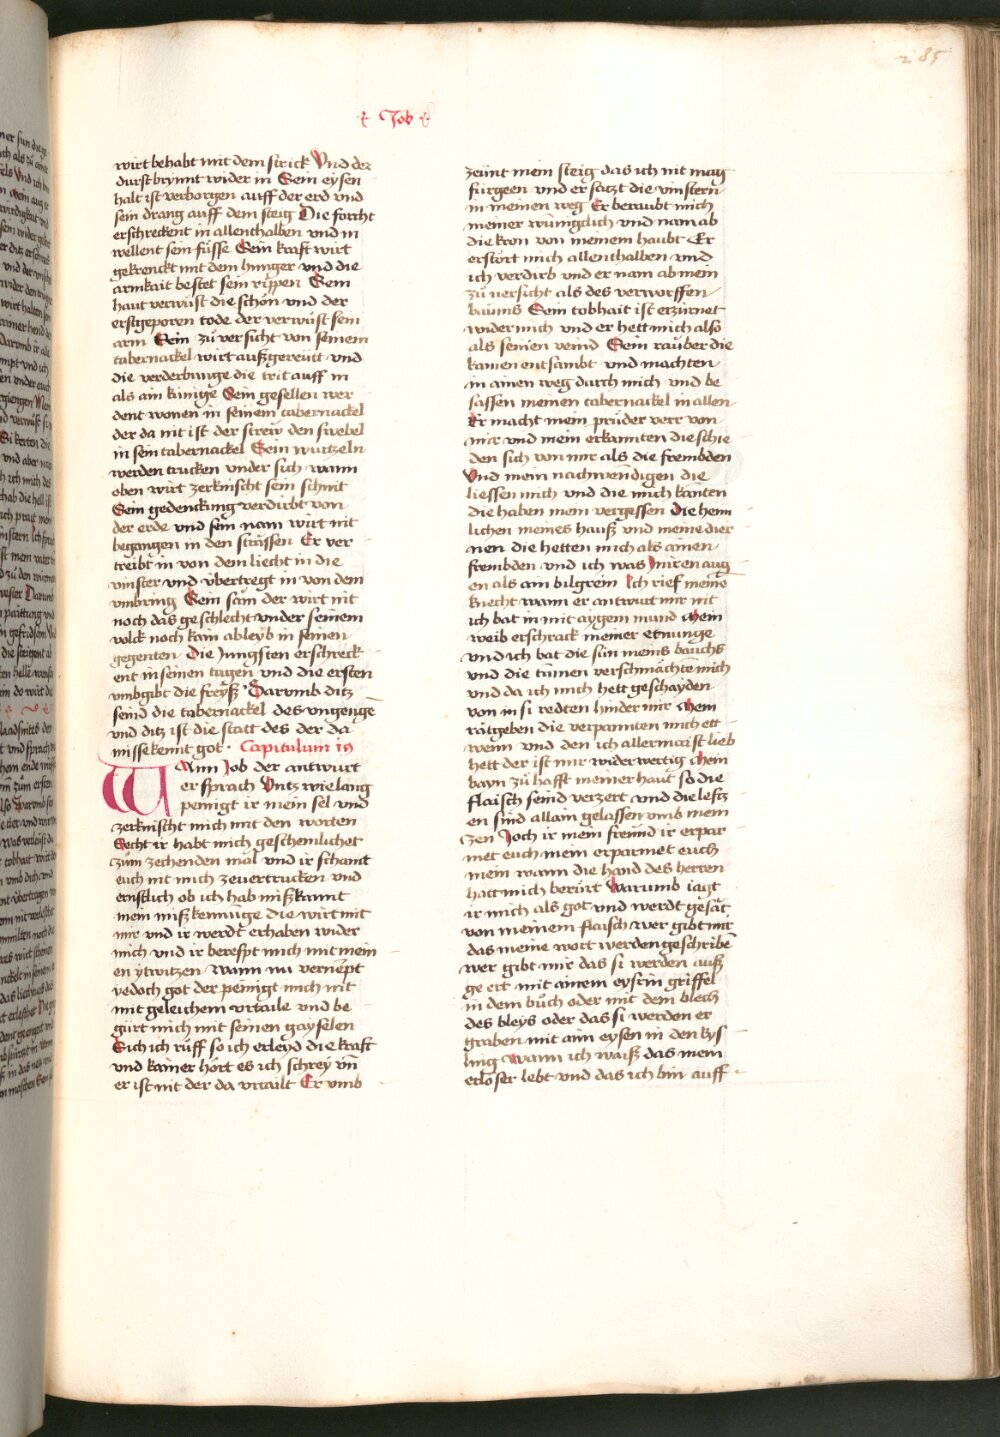 285
Job
wirt behabt mit dem strick Vnd der
durst brynnt wider in Sein eysen
halt ist verborgen auff der erd vnd
sein drang auff dem steig Die forcht
erschreckent in allenthalben vnd in
wellent sein füsse Sein kraft wirt
gekrenckt mit dem hunger vnd die
armkait bestet sein rippen Sein
haut verwüst die schön vnd der
erstgeporen tode der verwüst sein
arm Sein zů versicht von seinem
tabernackel wirt außgereütt vnd
die verderbunge die trit auff in
als ain künige Sein gesellen wer
dent wonen in seinem tabernackel
der da nit ist der strew den swebel
in sein tabernackel Sein wurtzeln
werden trucken vnder sich wann
oben wirt zerknischt sein schnit
Sein gedenckung verdirbt von
der erde vnd sein nam wirt nit
begangen in den strassen Er ver
treibt in von dem liecht in die
vinster vnd vbertregt in von dem
vmbring Sein sam der wirt nit
noch das geschlecht vnder seinem
volck noch kain ableyb in seinen
gegenten Die Jungsten erschreck
ent in seinen tagen vnd die ersten
vmbgibt die freyß Darumb ditz
seind die tabernackel des vngenge
vnd ditz ist die statt des der da
missekennt got Capitulum 19
Wann Job der antwurt
er sprach Vntz wie lang
peinigt ir mein sel vnd
zerknischt mich mit den worten
Secht ir habt mich geschemlichet
zům zechenden mal vnd ir schamt
euch nit mich zevertrucken vnd
ernstlich ob ich hab mißkannt
mein mißkennuge die wirt mit
mir vnd ir werdt erhaben wider
mich vnd ir berefpt mich mit mein
en ytwitzen Wann nu vernempt
yedoch got der peinigt mich nit
mit geleichem vrtaile vnd be
gürt mich mit seinen gayselen
Sich ich rüff so ich erleyd die kraft
vnd kainer hört es ich schrey vn̄
er ist nit der da vrtailt Er vmb
zeünt mein steig das ich nit mag
fürgeen vnd er satzt die vinstern
in meinen weg Er beraubt mich
meiner wünigclich vnd nam ab
die kron von meinem haubt Er
erstört mich allenthalben vnd
ich verdirb vnd er nam ab mein
zů versicht als des verworffen
baums Sein tobhait ist erzürnet
wider mich vnd er hett mich also
als seinen veind Sein rauber die
kamen entsambt vnd machten
in ainen weg durch mich vnd be
sassen meinen tabernackel in allen
Er macht mein prüder verr von
mir vnd mein erkannten die schie
den sich von mir als die frembden
Vnd mein nachwendigen die
liessen mich vnd die mich kanten
die haben mein vergessen die heim
lichen meines hauß vnd meine dier
nen die hetten mich als ainen
frembden vnd ich was in iren aug
en als ain bilgrein Ich rief meine
knecht wann er antwurt mir nit
ich bat in mit aygem mund Mein
weib erschrack meiner etnunge
vnd ich bat die sün meins bauchs
vnd die tumen verschmächten mich
vnd da ich mich hett geschayden
von in si redten hinder mir Mein
rätgeben die verpannten mich ett
wenn vnd den ich allermaist lieb
hett der ist mir widerwertig Mein
bayn zů hafft meiner haut so die
flaisch seind verzert vnd die lefftz
en sind allain gelassen vmb mein
zen Joch ir mein freund ir erpar
met euch mein erparmet euch
mein wann die hand des herren
hatt mich berürt Warumb iagt
ir mich als got vnd werdt gesät
von meinem flaisch wer gibt mir
das meine wort werden geschriben̄
wer gibt mir das si werden auß
ge ert mit ainem eysrin griffel
in dem bůch oder mit dem blech
des bleys oder das si werden er
graben mit aim eysen in den kys
ling Wann ich waiß das mein
erlöser lebt vnd das ich bin auff